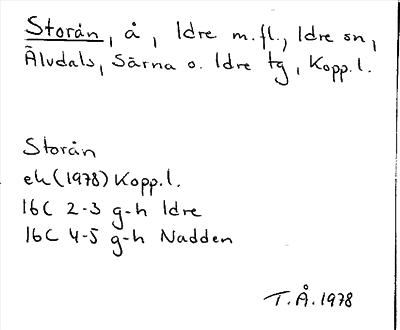 Storån, å, Idre m.fl., Idre sn,
Älvdals, Särna o. Idre tg, Kopp.l.
Storån
ek (1978) Kopp.l.
16C 2-3 g-h Idre
16C 4-5 g-h Nadden
T.Å. 1978